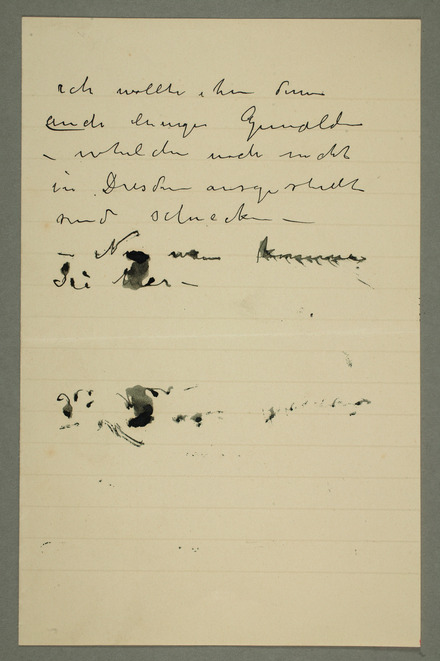 ich wollte ihn dann
auch einige Gemälde
– welche noch nicht
in Dresden ausgestellt
sind schicken –
– Nun wann kommen
Sie her –